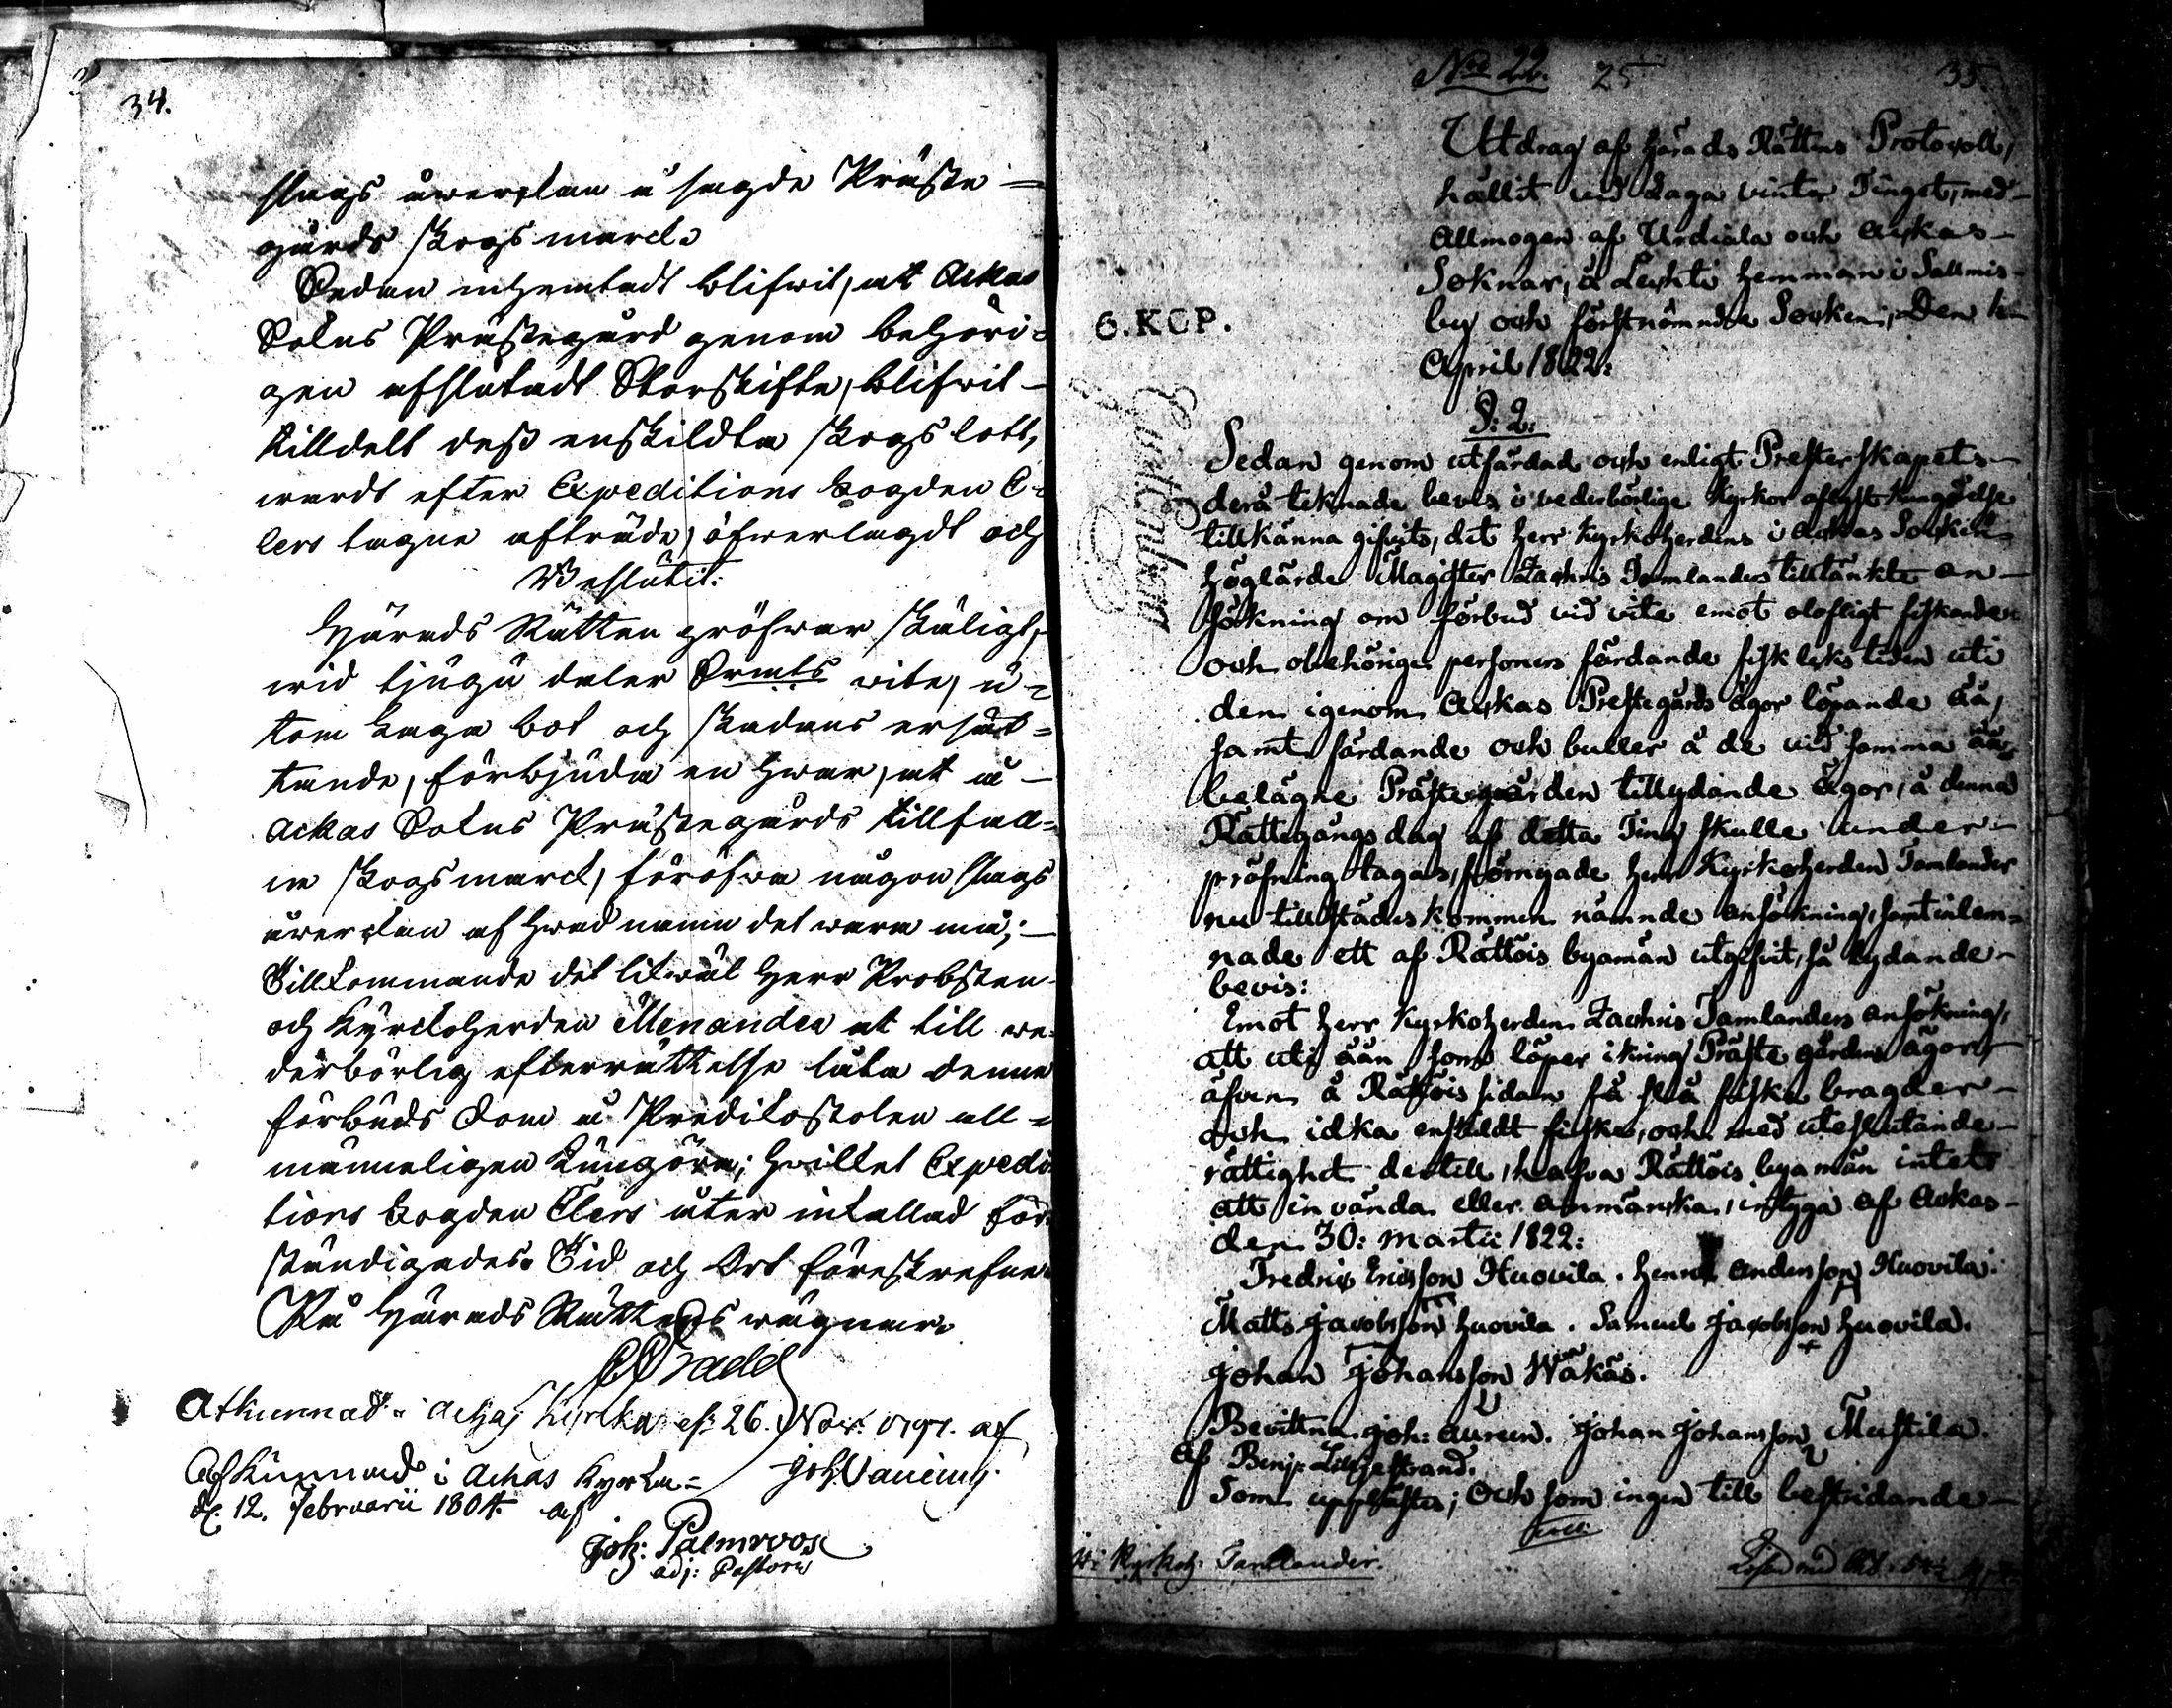 34.
slags åwerckan å sagde Präste-
gårds skogsmarck.
Sedan inhemtadt blifwit, at Ackas
Sokns Prästegård genom behöri-
gen afslutadt Storskifte, blifwit
tilldelt dess enskildta skogslott,
wardt efter Expeditions Fogden E-
lers tagne afträde, öfwerlagdt och
Beslutit:
Härads Rätten pröfwar skäligt,
wid tjugu daler Srmts wite, u-
tom Laga bot och skadans ersät-
tande, förbjuda en hwar, at å
Ackas Sokns Prästegårds tillfall-
ne skogsmarck, föröfwa någon slags
åwerckan af hwad namn det wara må;
Tillkommande det likwäl Herr Probsten
och Kyrckoherden Menander at till we-
derbörlig efterrättelse låta denne
förbuds Dom å Predikostolen all-
männeligen kungöra; hwilket Expedi-
tions Fogden Elers åter inkallad för-
ständigades. Tid och Ort föreskrefne.
På Härads Rättens wägnar.
Afkunnat i Ackas Kyrcka d. 26. Nov. 1797. af
Afkunnad i Ackas Kyrka
d. 12. Februarii 1804. af
Joh: Palmroos
adj: Pastoris
No 22. 25 35.
Utdrag af Härads Rättens Protocoll,
hållit vid Laga vinter Tinget, med
Allmogen af Urdiala och Ackas
Soknar, å Leckti hemman i Salmis
by och förstnämnde Socken, Den
April 1822.
6. KCP.
§. 2.
Sedan genom utfärdad och enligt Presterskapets
derå teknade bevis i vederbörlige Kyrkor aflyst Kungörelse
tillkänna gifvits, det Herr Kyrkoherdens i Ackas Socken
Höglärde Magister Zachris Tamlanders tilltänkte an-
sökning om förbud vid vite emot olofligt fiskande
och obehörige personers färdande fisk lekstiden uti
den igenom Ackas Prestegårds ägor löpande åå,
samt färdande och buller å de vid samma åå
belägne Prästegården tillydande ägor, å denna
Rättegångs dag af detta Ting skulle under-
pröfning tagas, förnyade Herr Kyrkoherden Tamlander
nu tillstädeskommen nämnde ansökning, samt inlem-
nade ett af Rättöis byamän utgifvit, så lydande
bevis:
Emot Herr Kyrkoherden Zachris Tamlanders ansökning,
att uti åån som löper ikring Prästegårdens ägor,
äfven å Rättöis sidan få slå fiske bragder
och idka enskildt fiske, och med uteslutande
rättighet dertill, hafva Rättöis byamän intet
att invända eller anmärcka, intyga af Ackas
den 30: Martii 1822:
Fredric Ericsson Huovila. Henric Andersson Huovila.
Matts Jacobsson Huovila. Samuel Jacobsson Huovila.
Johan Johansson Wäkäs.
Bevittna Joh: Aureen. Johan Johansson Mustila.
af Benj: Liljestrand.
Som upplästes; Och som ingen till bestridande
Kyrkoh. Tamlander.